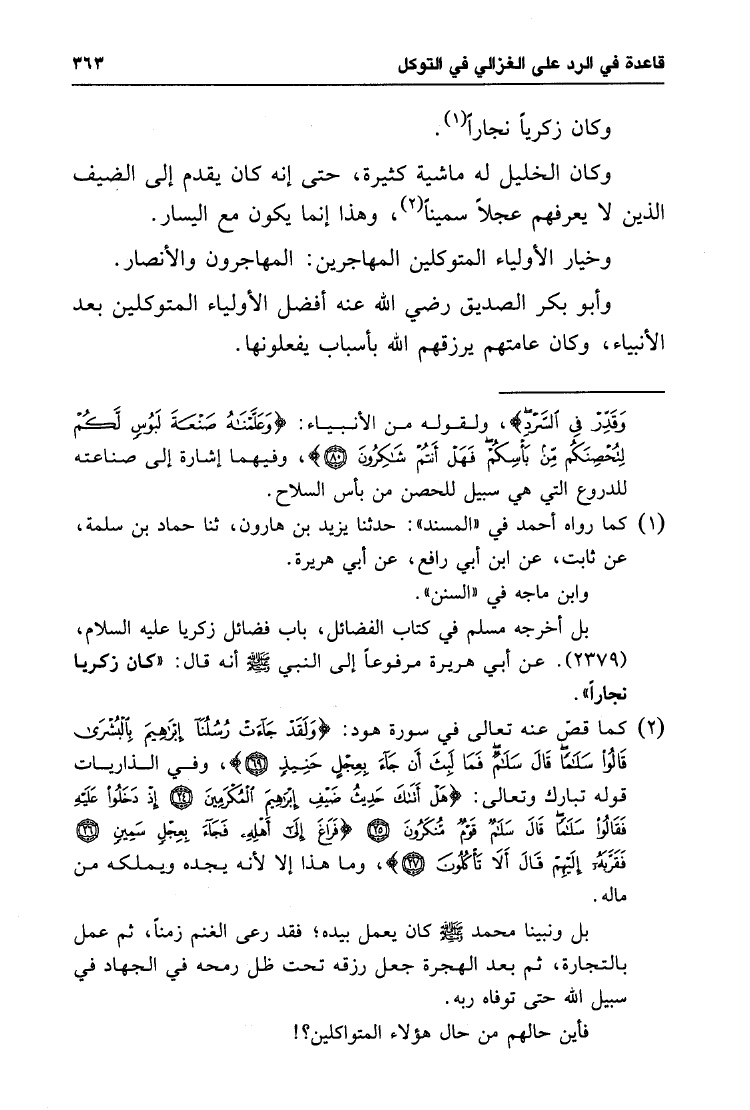 قاعدة في الرد على الغزالي في التوكل ٣٦٣
وكان زكريا نجاراً(١).
وكان الخليل له ماشية كثيرة، حتى إنه كان يقدم إلى الضيف
الذين لا يعرفهم عجلاً سميناً(٢)، وهذا إنما يكون مع اليسار.
وخيار الأولياء المتوكلين المهاجرين: المهاجرون والأنصار.
وأبو بكر الصديق رضي الله عنه أفضل الأولياء المتوكلين بعد
الأنبياء، وكان عامتهم يرزقهم الله بأسباب يفعلونها.
وَقَدِّرْ فِي ٱلسَّرْدِۖ﴾، ولقوله من الأنبياء: ﴿وَعَلَّمْنَٰهُ صَنْعَةَ لَبُوسٍ لَّكُمْ
لِتُحْصِنَكُم مِّنۢ بَأْسِكُمْۖ فَهَلْ أَنتُمْ شَٰكِرُونَ ٨٠﴾، وفيهما إشارة إلى صناعته
للدروع التي هي سبيل للحصن من بأس السلاح.
(١) كما رواه أحمد في «المسند»: حدثنا يزيد بن هارون، ثنا حماد بن سلمة،
عن ثابت، عن ابن أبي رافع، عن أبي هريرة.
وابن ماجه في «السنن».
بل أخرجه مسلم في كتاب الفضائل، باب فضائل زكريا عليه السلام،
(٢٣٧٩). عن أبي هريرة مرفوعاً إلى النبي ﷺ أنه قال: «كان زكريا
نجاراً».
(٢) كما قصّ عنه تعالى في سورة هود: ﴿وَلَقَدْ جَآءَتْ رُسُلُنَآ إِبْرَٰهِيمَ بِٱلْبُشْرَىٰ
قَالُوا۟ سَلَٰمًاۖ قَالَ سَلَٰمٌۖ فَمَا لَبِثَ أَن جَآءَ بِعِجْلٍ حَنِيذٍ ٦٩﴾، وفي الذاريات
قوله تبارك وتعالى: ﴿هَلْ أَتَىٰكَ حَدِيثُ ضَيْفِ إِبْرَٰهِيمَ ٱلْمُكْرَمِينَ ٢٤ إِذْ دَخَلُوا۟ عَلَيْهِ
فَقَالُوا۟ سَلَٰمًاۖ قَالَ سَلَٰمٌ قَوْمٌ مُّنكَرُونَ ٢٥ ﴿فَرَاغَ إِلَىٰٓ أَهْلِهِۦ فَجَآءَ بِعِجْلٍ سَمِينٍ ٢٦
فَقَرَّبَهُۥٓ إِلَيْهِمْ قَالَ أَلَا تَأْكُلُونَ ٢٧﴾، وما هذا إلا لأنه يجده ويملكه من
ماله.
بل ونبينا محمد ﷺ كان يعمل بيده؛ فقد رعى الغنم زمناً، ثم عمل
بالتجارة، ثم بعد الهجرة جعل رزقه تحت ظل رمحه في الجهاد في
سبيل الله حتى توفاه ربه.
فأين حالهم من حال هؤلاء المتواكلين؟!